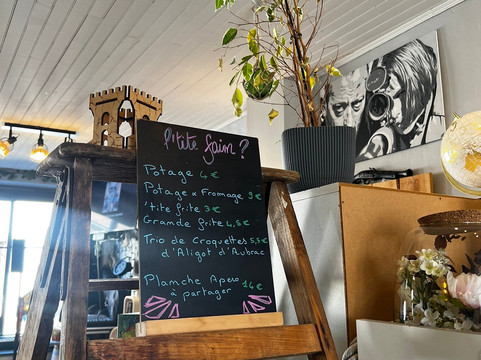 P'tite faim ?
Potage 4€
Potage & Fromage 9€
'tite frite 3€
Grande frite 4,5€
Trio de Croquettes 5,5€
d'Aligot d'Aubrac
Planche Apéro 14€
à partager